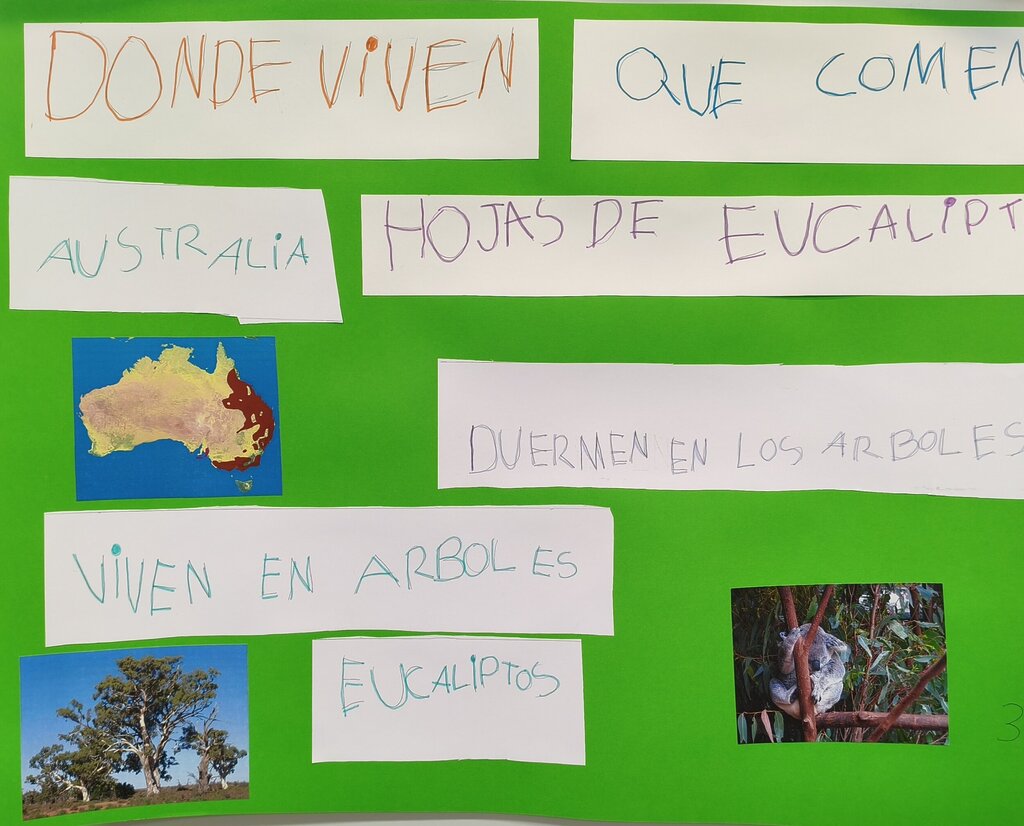 DONDE ViVEN
QUE COMEN
AUSTRALiA
HOJAS DE EUCALiPT
DUERMEN EN LOS ARBOLES
ViVEN EN ARBOLES
EUCALIPTOS
3